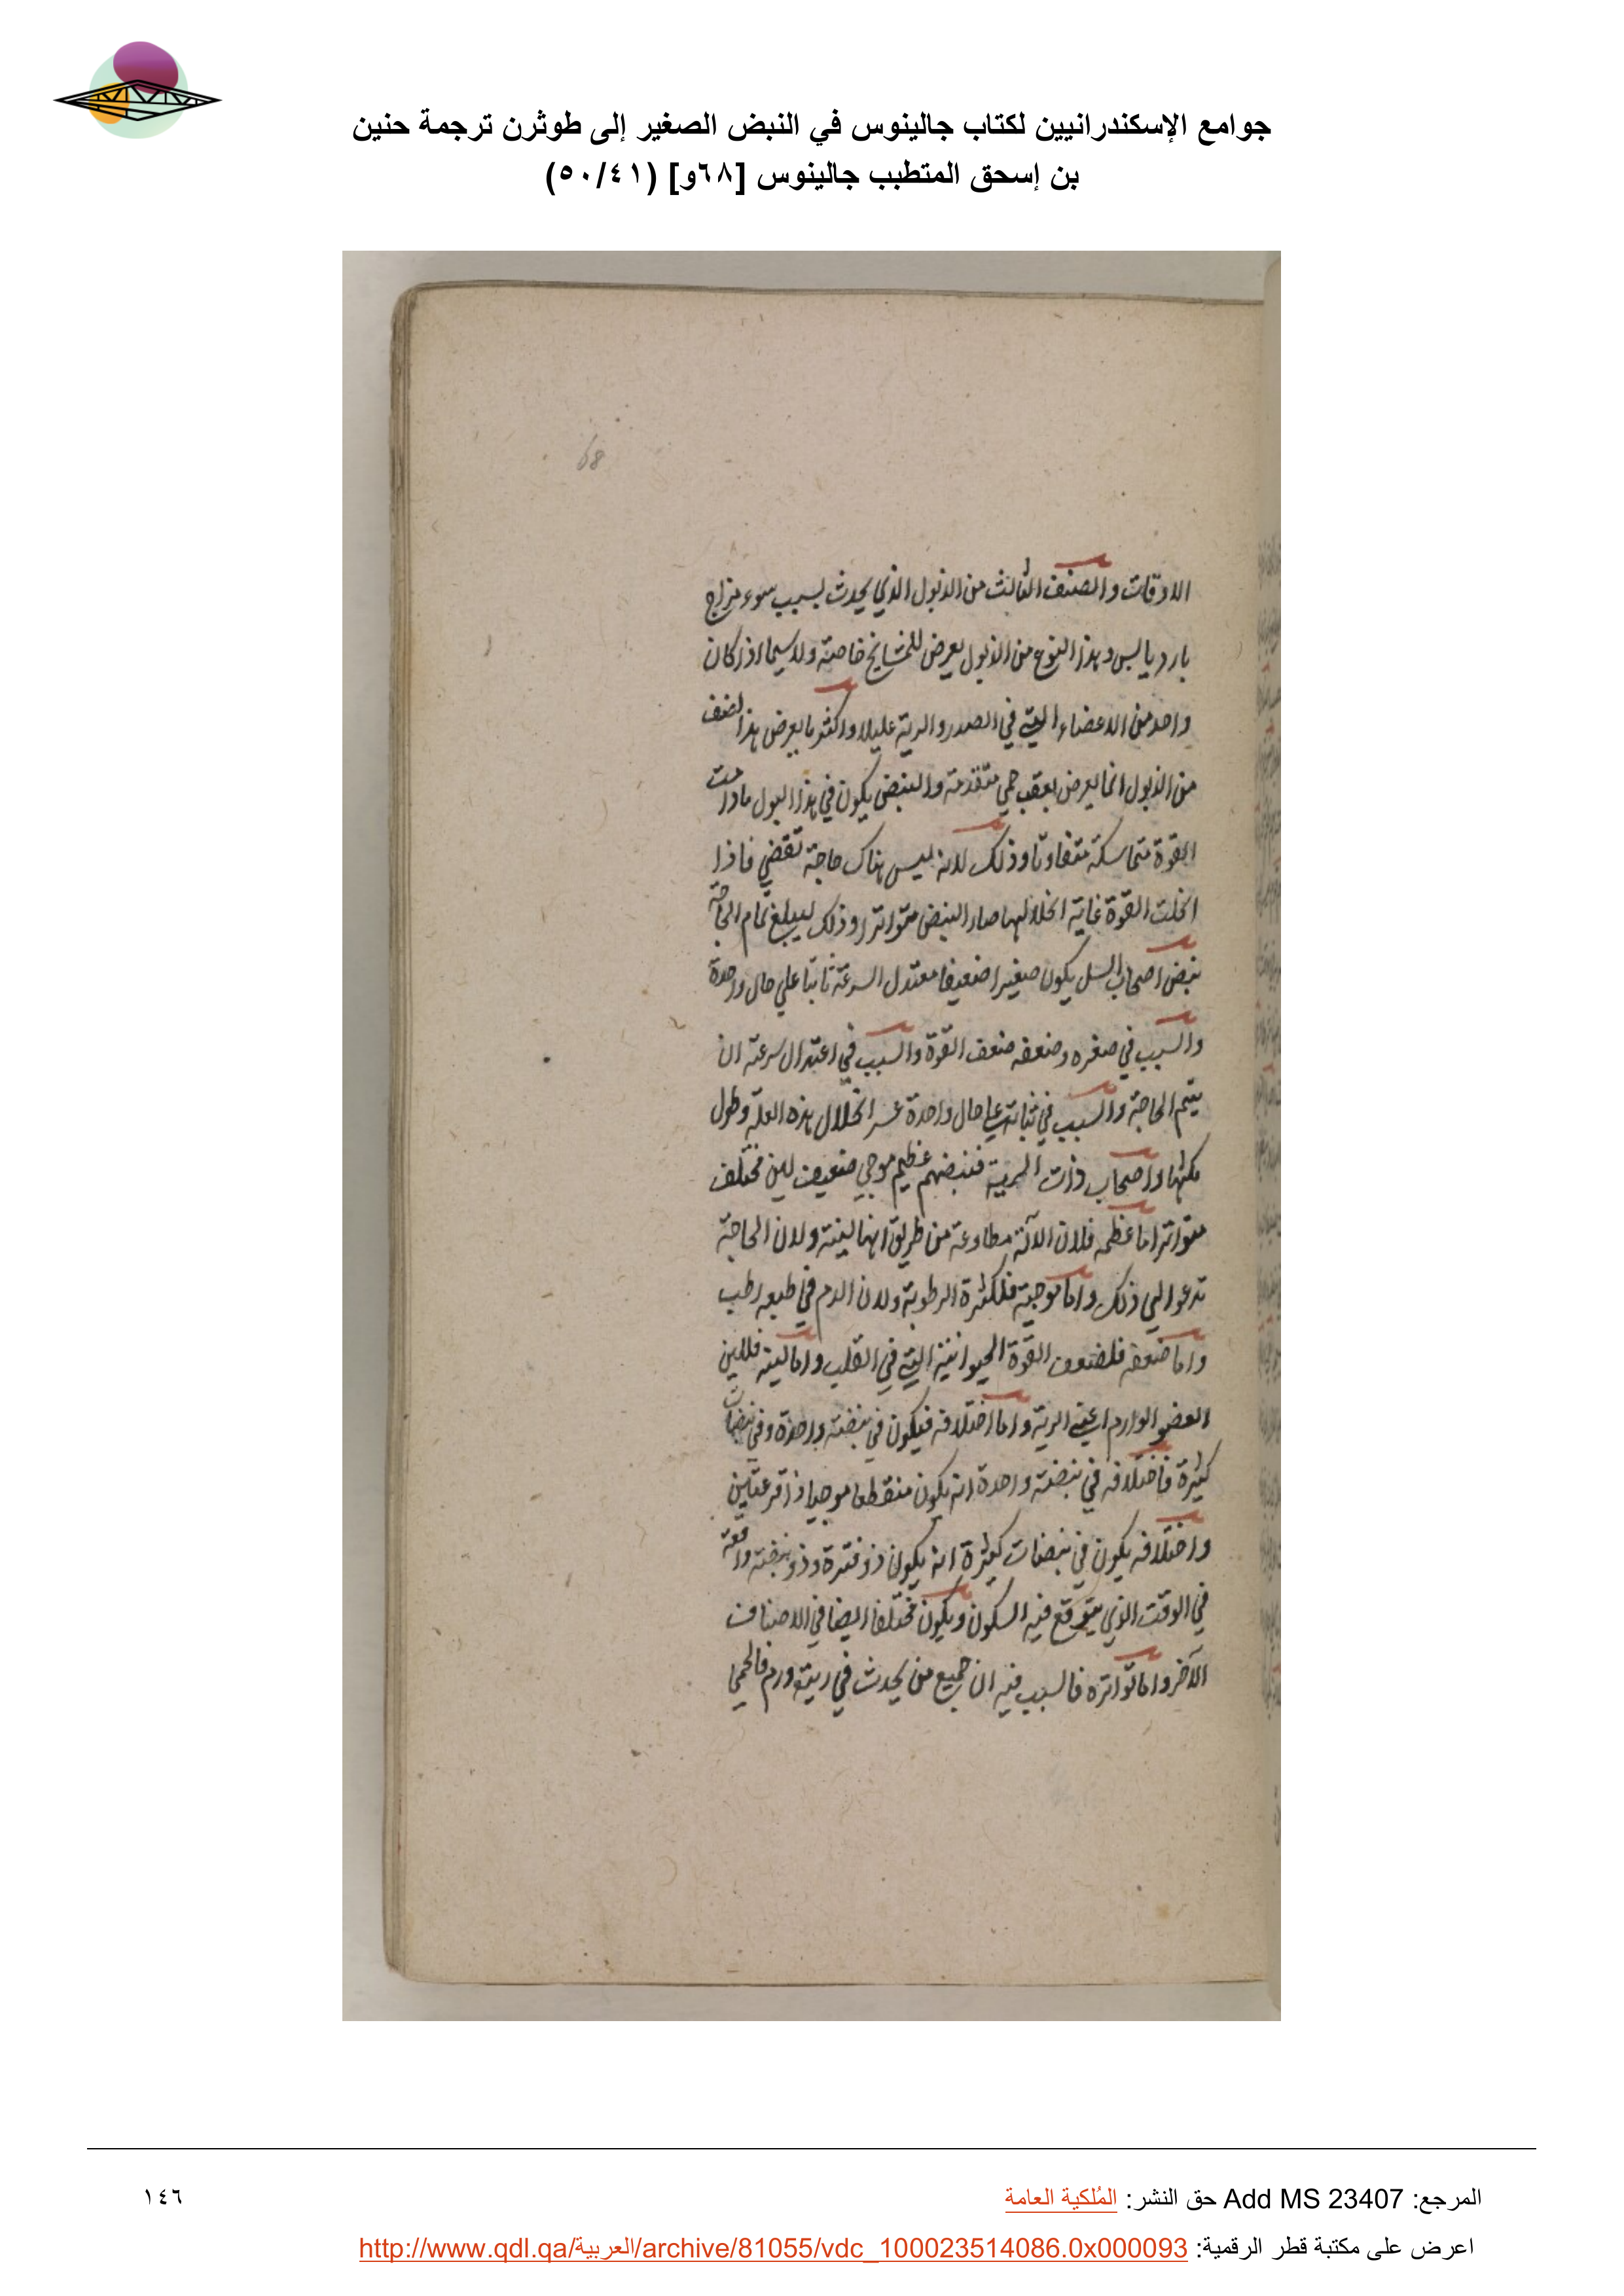 جوامع الإسكندرانيين لكتاب جالينوس في النبض الصغير إلى طوثرن ترجمة حنين
بن إسحق المتطبب جالينوس [٦٨و] (٥٠/٤١)
68
الاوقات والصنف الثالث من الذبول الذي يحدث بسبب سوء مزاج
بارد يابس وهذا النوع من الذبول يعرض للمشايخ خاصة ولا سيما اذا كان
واحد من الاعضاء التي في الصدر والرية عليلا واكثر ما يعرض هذا الصنف
من الذبول انما يعرض بعقب حمي متقدمة والنبض يكون في هذا البول ما دامت
القوة متماسكة متفاوتا وذلك لانه ليس هناك حاجة تقضي فاذا
انحلت القوة غاية انحلالها صار النبض متواترا وذلك ليبلغ تمام الحاجة
نبض اصحاب السل يكون صغيرا ضعيفا معتدل السرعة ثابتا علي حال واحدة
والسبب في صغره وضعفه ضعف القوة والسبب في اعتدال سرعته ان
يتم الحاجة والسبب في ثباته علي حال واحدة عسر انحلال هذه العلة وطول
مكثها واصحاب ذات الرية فنبضهم عظيم موجي ضعيف لين مختلف
متواتر اما عظمه فلان الآلة مطاوعة من طريق انها لينة ولان الحاجة
تدعو الي ذلك واما موجيته فلكثرة الرطوبة ولان الدم في طبعه رطب
واما ضعفه فلضعف القوة الحيوانية التي في القلب واما لينه فللين
العضو الوارم اعني الرية واما اختلافه فيكون في نبضة واحدة وفي نبضات
كثيرة فاختلافه في نبضة واحدة انه يكون منقطعا موجيا ذا قرعتين
واختلافه يكون في نبضات كثيرة انه يكون ذو فترة وذو نبضة واقعة
في الوقت الذي يتوقع فيه السكون ويكون مختلفا ايضا في الاصناف
الآخر واما تواتره فالسبب فيه ان جميع من يحدث في ريته ورم فالحمي
المرجع: Add MS 23407 حق النشر: المُلكية العامة
١٤٦
اعرض على مكتبة قطر الرقمية: http://www.qdl.qa/العربية/archive/81055/vdc_100023514086.0x000093